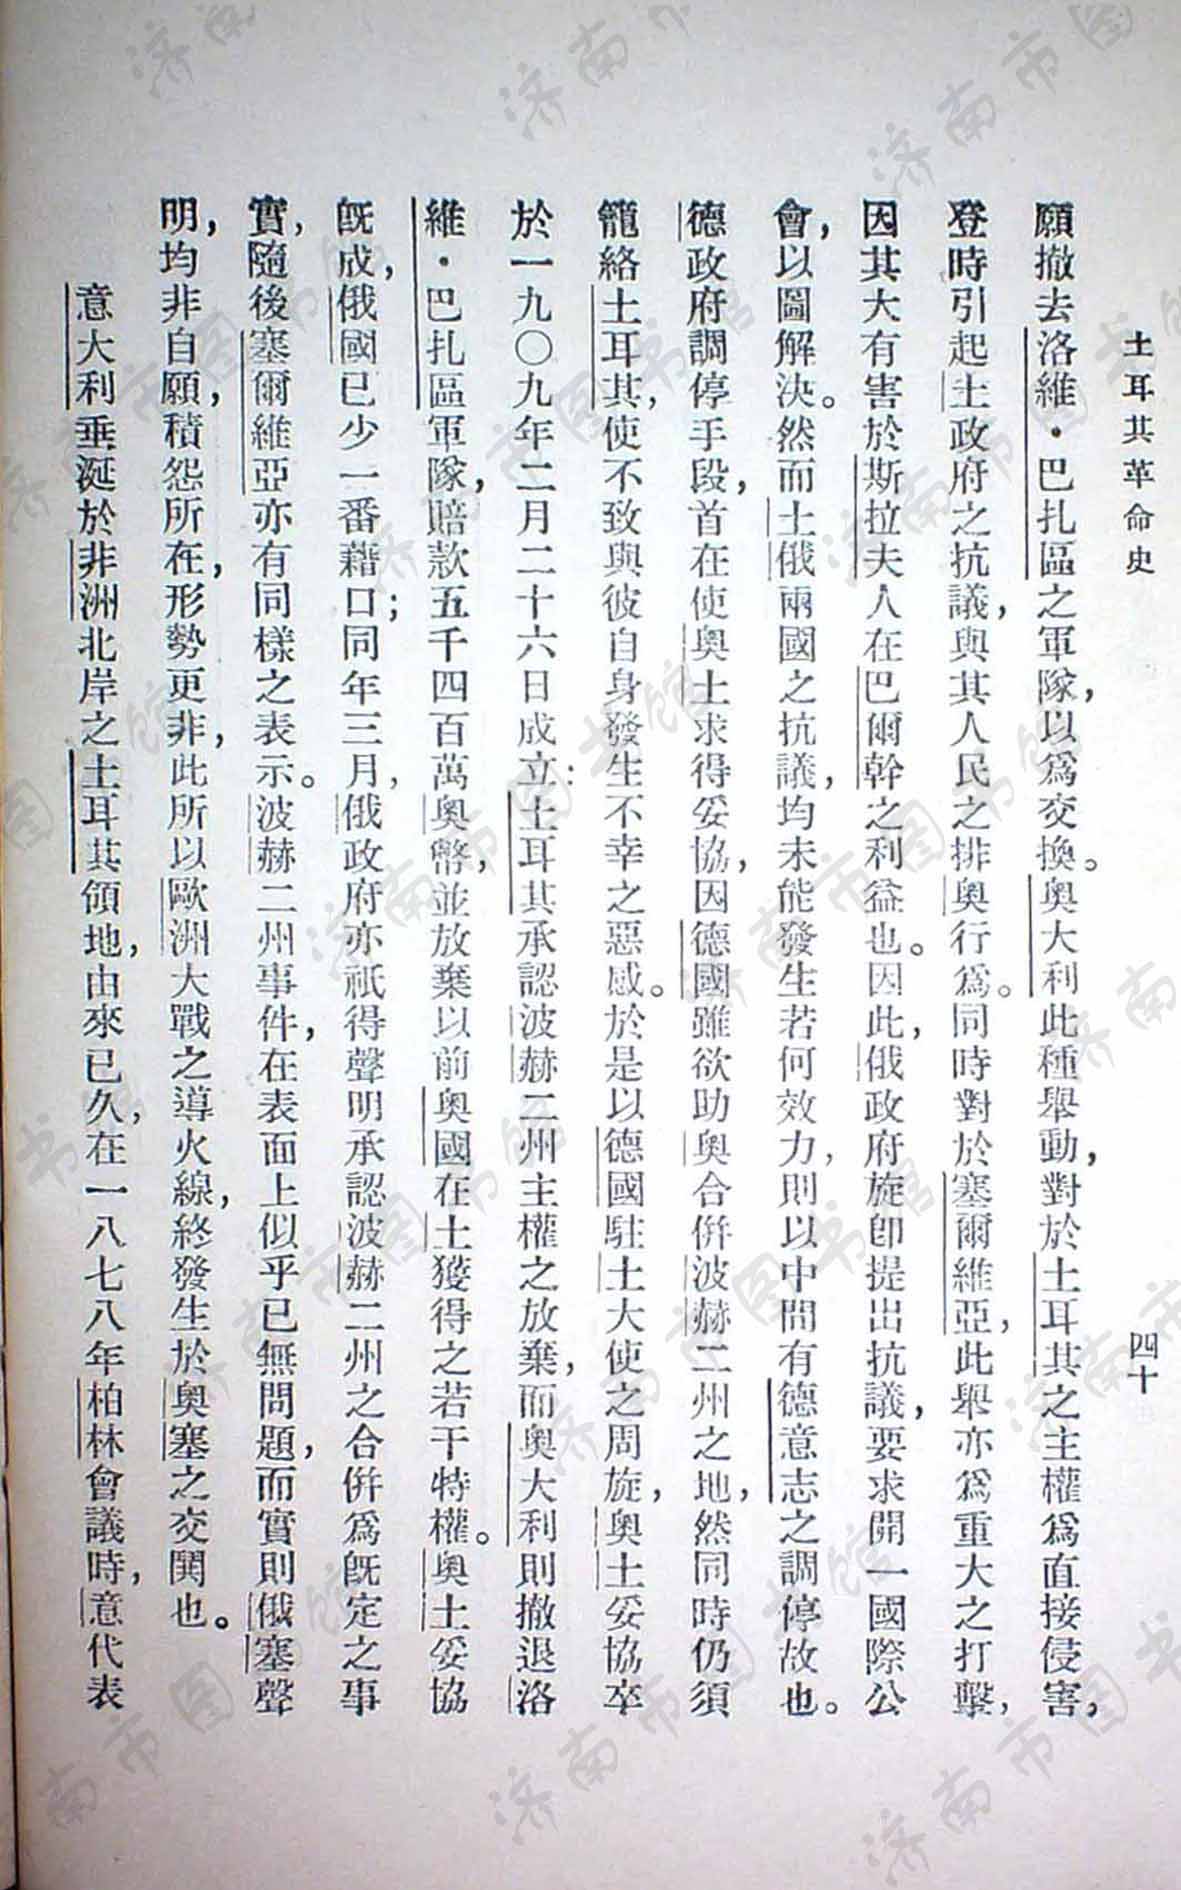 土耳其革命史
四十
願撤去洛維·巴扎區之軍隊,以爲交換。奧大利此種舉動,對於土耳其之主權爲直接侵害,
登時引起土政府之抗議,與其人民之排奧行爲。同時對於塞爾維亞,此舉亦爲重大之打擊,
因其大有害於斯拉夫人在巴爾幹之利益也。因此,俄政府旋卽提出抗議,要求開一國際公
會,以圖解決。然而土俄兩國之抗議,均未能發生若何效力,則以中間有德意志之調停故也。
德政府調停手段,首在使奧土求得妥協,因德國雖欲助奧合併波赫二州之地,然同時仍須
籠絡土耳其,使不致與彼自身發生不幸之惡感。於是以德國駐土大使之周旋,奧土妥協卒
於一九〇九年二月二十六日成立:土耳其承認波赫二州主權之放棄,而奧大利則撤退洛
維·巴扎區軍隊,賠款五千四百萬奧幣,並放棄以前奧國在土獲得之若干特權。奧土妥協
旣成,俄國已少一番藉口;同年三月,俄政府亦祇得聲明承認波赫二州之合併爲旣定之事
實,隨後塞爾維亞亦有同樣之表示。波赫二州事件,在表面上似乎已無問題,而實則俄塞聲
明,均非自願,積怨所在,形勢更非,此所以歐洲大戰之導火線,終發生於奧塞之交鬨也。
意大利垂涎於非洲北岸之土耳其領地,由來已久,在一八七八年柏林會議時,意代表
济南市图书馆